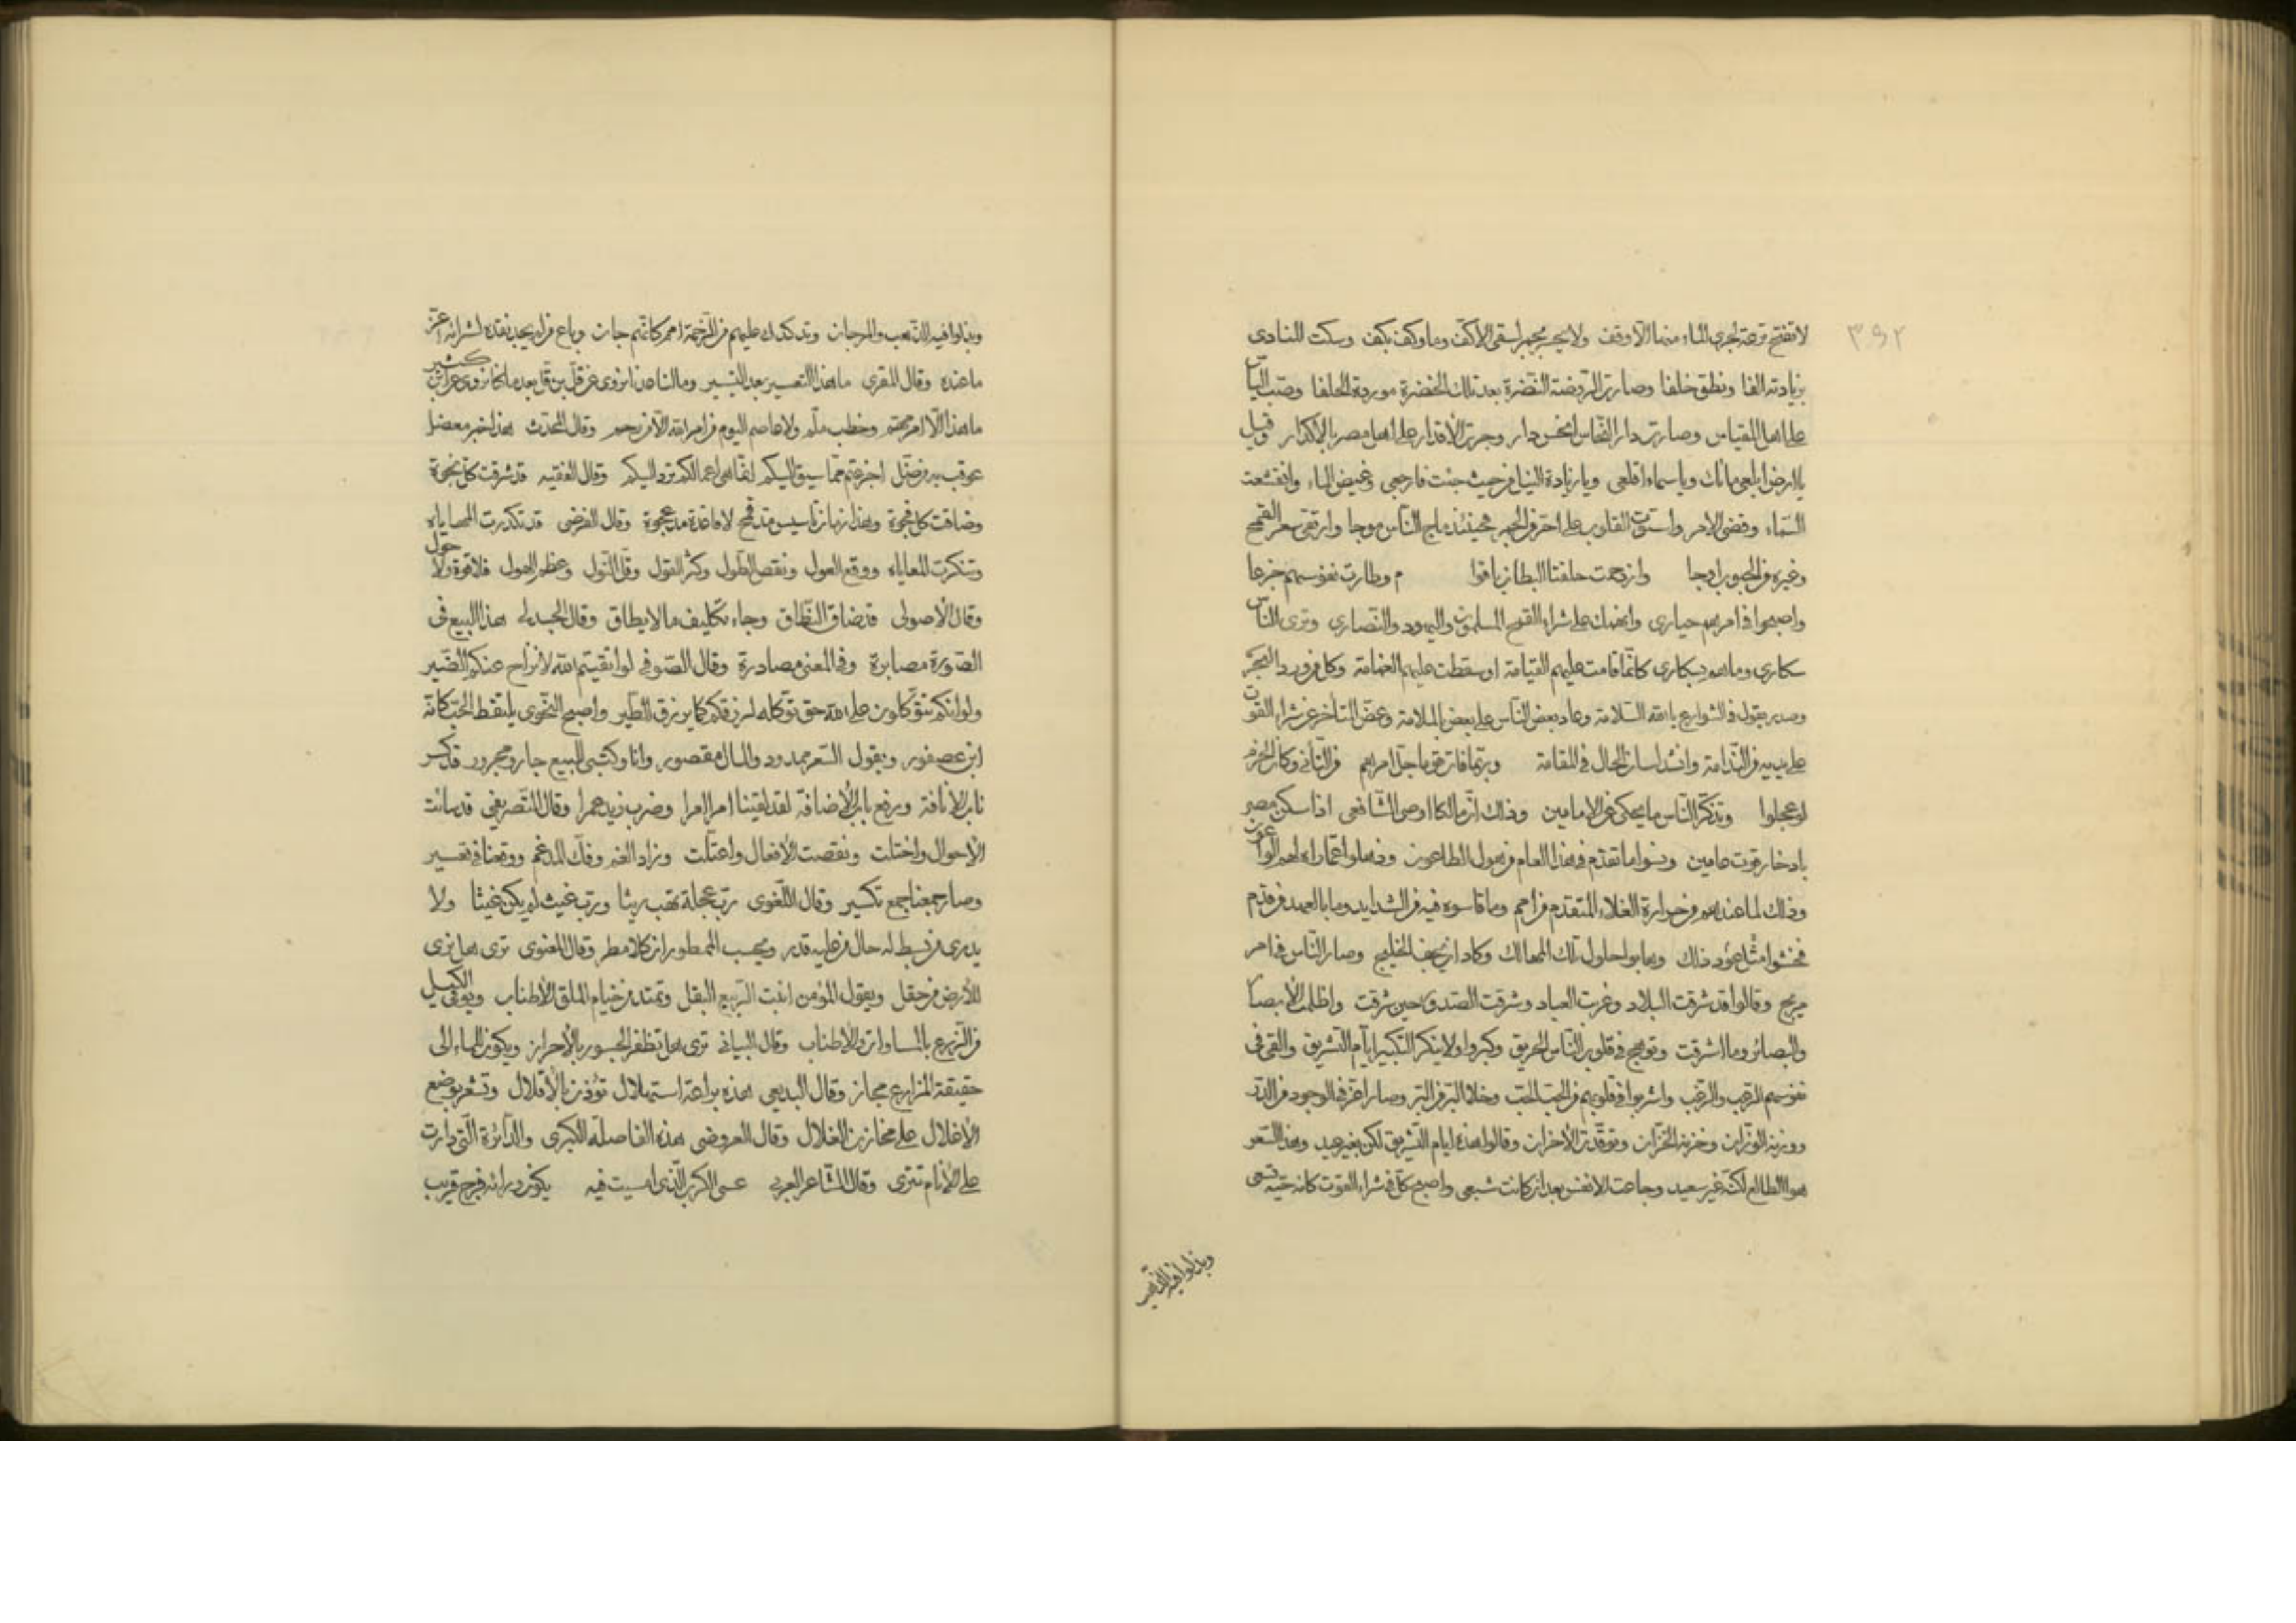 ٣٩٢
لا تفتح ترعة لجرى الماء منها الا وقف ولا يجبر مجبر لسقى الاكف وما وكف بكف وسكت المنادى
بزيادته الفا ونطق خلفا وصارت الروضة النضرة بعد تلك الخضرة موردة الحلفا وصب الباس
على اهل المقياس وصارت دار النحاس انحس دار وجرت الأقدار على اهل مصر بالاكدار وقيل
يا ارض ابلعى مائك وياسماء اقلعى ويا زيادة النيل من حيث جئت فارجعى وغيض الماء وانقشعت
السماء وقضى الامر واستوت القلوب على احر من الجمر فحينئذ ماج الناس موجا وارتقى سعر القمح
وغيره من الحبوب اوجا وازدحمت حلقتا البطان بأقوا م وطارت نفوسهم جزعا
واصبحوا فى امرهم حيارى وانهمك على شراء القمح المسلمون واليهود والنصارى وترى الناس
سكارى وما هم بسكارى كانما قامت عليهم القيامة او سقطت عليهم الغمامة وكل من ورد البحر
وصدر يقول فى الشوارع يا الله السلامة وعاد بعض الناس على بعض بالملامة وعض المتأخر عن شراء القوت
على يديه من الندامة وانشد لسان الحال فى المقامة وربما فات قوما جل امرهم من التأنى وكان الحزم
لو عجلوا وتذكر الناس ما يحكى عن الامامين وذلك ان مالكا اوصى الشافعى اذا سكن مصر
بادخار قوت عامين ونسوا ما تقدم فى هذا العام من هول الطاعون وذهلوا عما راه اهم الواعون
وذلك لما عندهم من حرارة الغلاء المتقدم من امم وما قاسوه فيه من الشدايد وما بالعهد من قدم
فخشوا مثل عود ذلك وهابوا حلول تلك المهالك وكاد ان يجف الخليج وصار الناس فى امر
مريج وقالوا قد شرقت البلاد وغربت العباد وشرقت الصدور حين شرقت واظلمت الأبصار
والبصائر وما اشرقت وتوهج فى قلوب الناس الحريق وكبروا ولا ينكر التكبير ايام التشريق والقى فى
نفوسهم الرعب والرغب واشربوا فى قلوبهم من الحب الحب وخلا البر من البر وصار اعز فى الوجود من الدر
ووزنه الوزان وخزنه الخزان وتوقدت الأحزان وقالوا هذه ايام التشريق لكن بغير عيد وهذا السعر
هو الطالع لكنه غير سعيد وجاعت الانفس بعد ان كانت شبعى واصبح كل فى شراء القوت كانه حية تسعى
وبذلوا فيه الذهب
وبذلوا فيه الذهب والمرجان وتدكدك عليهم من الزحمة امم كانهم جان وباع من لم يجد نقده لشرائه اعز
ما عنده وقال المقرى ما هذا التعسير بعد التيسير وما لنا عدنا نروى عن قالون بعد ما كنا نروى عن ابن كثير
ما هذا الا امر محتم وخطب ملم ولا عاصم اليوم من امر الله الا من رحم وقال المحدث هذا خبر معضل
عوقب به من ضل اجزعتم مما سيق اليكم انما هى اعمالكم ترد اليكم وقال الفقيه قد شرقت كل نجوة
وضاقت كل فجوة وهذا زمان تأسيس مد قمح لا قاعدة مد عجوة وقال الفرضى قد تكدرت المهاياه
وتنكرت المعاياه ووقع العول ونقص الطول وكثر القول وقل النول وعظم الهول فلا قوة ولا حول
وقال الأصولى قد ضاق النطاق وجاء تكليف ما لا يطاق وقال الجدلى هذا البيع فى
الصورة مصابرة وفى المعنى مصادرة وقال الصوفى لو اتقيتم الله لانزاح عنكم الضير
ولو انكم تتوكلون على الله حق توكله لرزقكم كما يرزق الطير واصبح النحوى يلتقط الحب كانه
ابن عصفور ويقول السعر ممدود والمال مقصور وانا وكتبى للبيع جار ومجرور قد كسر
ناب الأنافة ورفع باب الأضافة لقد لقينا امرا امرا وضرب زيد عمرا وقال التصريفى قد سائت
الأحوال واختلت ونقصت الأفعال واعتلت وزاد الغم وفك المدغم ووقعنا فى تعسير
وصار جمعنا جمع تكسير وقال اللغوى رب عجلة تهب ريثا ورب غيث لم يكن غيثا ولا
يدرى من بسط له حال من عليه قدر ويحسب الممطور ان كلا مطر وقال المعنوى ترى هل نرى
للأرض من حقل ويقول المؤمن انبت الربيع البقل وتمتد من خيام الملق الأطناب ويوفى الكيل
من الزرع بالمساوات والاطناب وقال البيانى ترى هل تظفر الجسور بالأحراز ويكون الماء الى
حقيقة المزارع مجاز وقال البديعى هذه براعة استهلال تؤذن بالأقلال وتشعر بوضع
الأغلال على مخازن الغلال وقال العروضى هذه الفاصلة الكبرى والدائرة التى دارت
على الأنام تترى وقال الشاعر العربى عسى الكرب الذى امسيت فيه يكون ورائه فرج قريب